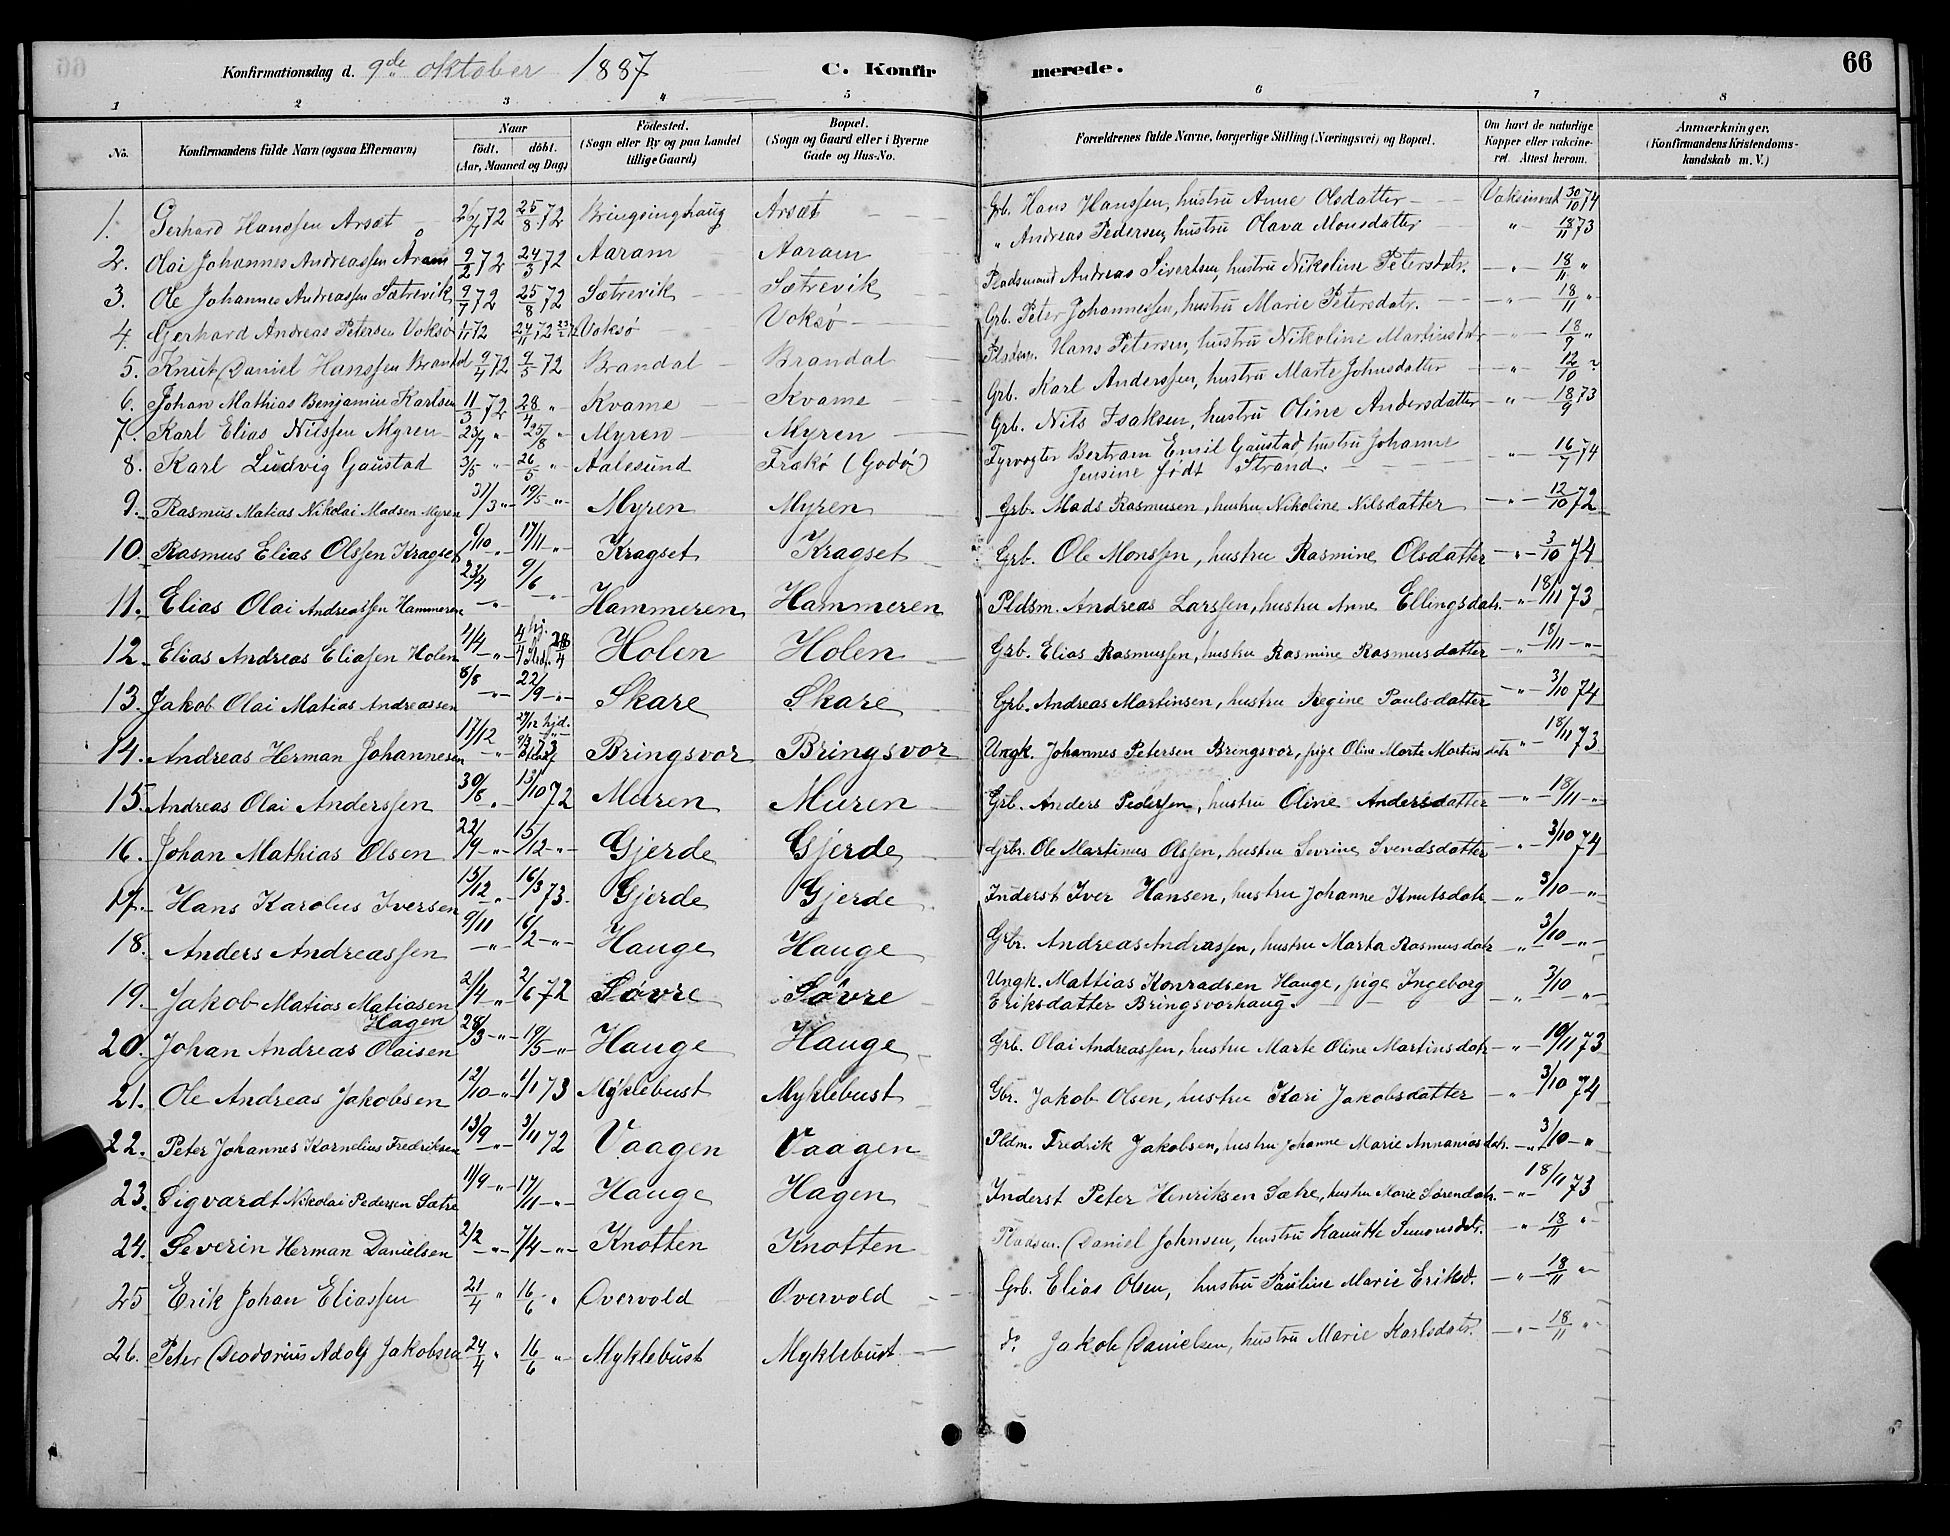 Konfirmationsdag d. 9de oktober 1887 C. Konfirmerede. 66
1 2 3 4 5 6 7 8
No. Konfirmandens fulde Navn (ogsaa Efternavn) Naar födt. döbt. (Aar, Maaned og Dag) Födested. (Sogn eller By og paa Landet tillige Gaard) Bopæl. (Sogn og Gaard eller i Byerne Gade og Hus-No. Forældrenes fulde Navne, borgerlige Stilling (Næringsvei) og Bopæl. Om havt de naturlige Kopper eller vakcineret. Attest herom. Anmærkninger. (Konfirmandens Kristendomskundskab m. V.)
1. Gerhard Hanssen Arsæt 26/7 72 25/8 72 Bringsinghaug Arsæt Grb. Hans Hanssen, hustru Anne Olsdatter Vaksineret 30/10 74
2. Olai Johannes Andreassen Aram 9/2 72 24/3 72 Aaram Aaram " Andreas Pedersen, hustru Olava Monsdatter " 18/11 73
3. Ole Johannes Andreassen Sætrevik 9/7 72 25/8 72 Sætrevik Sætrevik Pladsmand Andreas Sivertsen, hustru Nikoline Petersdatr. " 18/11 "
4. Gerhard Andreas Petersen Voksø 72 24/11 72 Voksø Voksø Grb. Peter Johannessen, hustru Marie Petersdatr. " 18/11 "
5. Knut Daniel Hanssen Brandal 9/4 72 9/5 72 Brandal Brandal Pladsm. Hans Petersen, hustru Nikoline Martinsdatr " 18/9 "
6. Johan Mathias Benjamin Karlsen 11/3 72 28/4 " Kvame Kvame Grb. Karl Anderssen, hustru Marte Johnsdatter " 12/10 "
7. Karl Elias Nilssen Myren 23/7 " 25/8 " Myren Myren Grb. Nils Isaksen, hustru Oline Andersdatter " 18/9 73
8. Karl Ludvig Gaustad 3/5 " 26/5 " Aalesund Frekø (Godø) Fyrvogter Bertram Emil Gaustad, hustru Johanne
Jensine født Strand. " 16/7 74
9. Rasmus Matias Nikolai Madsen Myren 31/3 " 19/5 " Myren Myren Grb. Mads Rasmusen, hustru Nikoline Nilsdatter " 12/10 72
10. Rasmus Elias Olssen Kragset 6/10 " 17/11 " Kragset Kragset Grb. Ole Monssen, hustru Rasmine Olsdatter " 3/10 74
11. Elias Olai Andreassen Hammeren 23/4 " 9/6 " Hammeren Hammeren Pldsm. Andreas Larssen, hustru Anne Ellingsdatr. " 18/11 73
12. Elias Andreas Eliasen Holen 1/4 " 4/4 hj. 28/4 Holen Holen Grb. Elias Rasmussen, hustru Rasmine Rasmusdatter " 18/11 "
13. Jakob Olai Matias Andreassen 8/8 " 22/9 " Skare Skare Grb. Andreas Martinsen, hustru Regine Paulsdatter " 3/10 74
14. Andreas Herman Johannesen 17/12 " 27/12 hjd. Bringsvor Bringsvor Ungk. Johannes Petersen Bringsvor, pige Oline Marte Martinsdatr " 18/11 73
15. Andreas Olai Anderssen 30/8 " 13/10 72 Muren Muren Grb. Anders Pederssen, hustru Oline Andersdatter " 18/11 "
16. Johan Mathias Olsen 22/9 " 15/12 " Gjerde Gjerde Grbr. Ole Martinus Olssen, hustru Sevrine Svendsdatter " 3/10 74
17. Hans Karolus Iversen 15/12 " 16/3 73. Gjerde Gjerde Inderst Iver Hansen, hustru Johanne Knutsdatr " 3/10 "
18. Anders Andreassen 9/11 " 16/2 " Hauge Hauge Grbr. Andreas Andreassen, hustru Marta Rasmusdatr " 3/10 "
19. Jakob Matias Matiasen
Hagen 21/4 " 2/6 72 Søvre Søvre Ungk. Mattias Konradsen Hauge, pige Ingeborg
Eriksdatter Bringsvorhaug. " 3/10 "
20. Johan Andreas Olaisen 28/3 " 19/5 " Hauge Hauge Grb. Olai Andreassen, hustru Marte Oline Martinsdatr " 19/11 73
21. Ole Andreas Jakobsen 12/10 " 1/1 73 Myklebust Myklebust Gbr. Jakob Olsen, hustru Kari Jakobsdatter " 3/10 74
22. Peter Johannes Kornelius Fredriksen 13/9 " 3/11 72 Vaagen Vaagen Pldm. Fredrik Jakobsen, hustru Johanne Marie Annaniasdatr. " 3/10 "
23. Sigvardt Nikolai Pedersen Sætre 11/9 " 17/11 " Hauge Hagen Inderst Peter Henriksen Sætre, hustru Marie Sørendatr. " 18/11 73
24. Severin Herman Danielsen 2/2 " 7/4 " Knotten Knotten Pladsm. Daniel Johnsen, hustru Hanutte Simonsdatr. " 18/11 "
25 Erik Johan Eliassen 21/4 " 16/6 " Overvold Overvold Grb. Elias Olsen, hustru Pauline Marie Eriksd. " 18/11 "
26. Peter Deodorius Adolf Jakobsen 24/4 " 16/6 " Myklebust Myklebust d. Jakob Danielsen, hustru Marie Karlsdatr. " 18/11 "